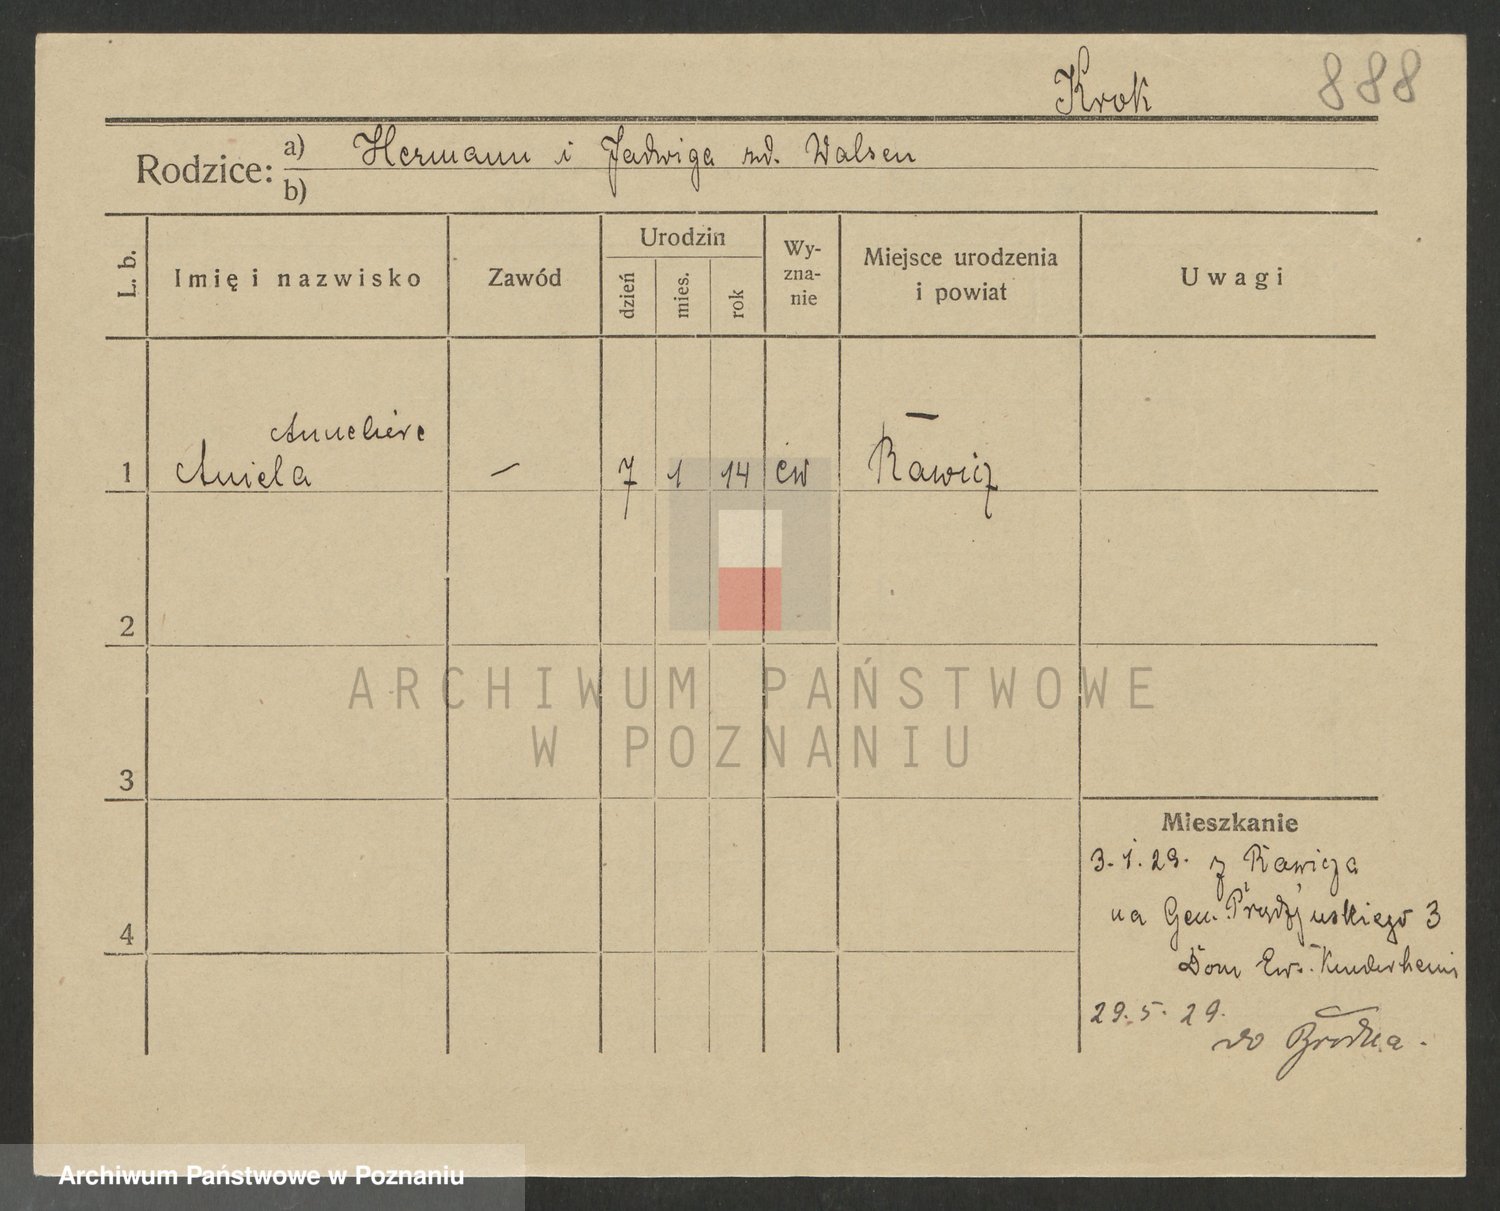 Krok 888
Rodzice: a) Hermann i Jadwiga zd. Walsen
b)
L. b. Imię i nazwisko Zawód Urodzin Wy-
zna-
nie Miejsce urodzenia
i powiat Uwagi
dzień mies. rok
Anneliere
1 Aniela – 7 1 14 ew Rawicz
2
3
4
Mieszkanie
3.1.29. z Rawicza
na Gen. Prądzyńskiego 3
Dom Ew. Kinderheim
29.5.29.
do
ARCHIWUM PAŃSTWOWE
W POZNANIU
Archiwum Państwowe w Poznaniu